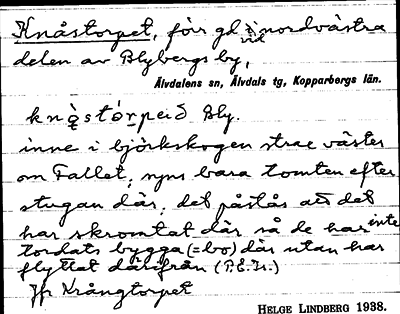 Knåstorpet, förr gd i nordvästra
delen av Blybergs by,
Älvdalens sn, Älvdals tg, Kopparbergs län.
Bly.
inne i björkskogen strax väster
om Fallet; syns bara tomten efter
stugan där; det påstås att det
har skromtat där så de har inte
tordats bygga (=bo) där utan har
flyttat därifrån (P.E.H.)
Jfr Krångtorpet
HELGE LINDBERG 1938.